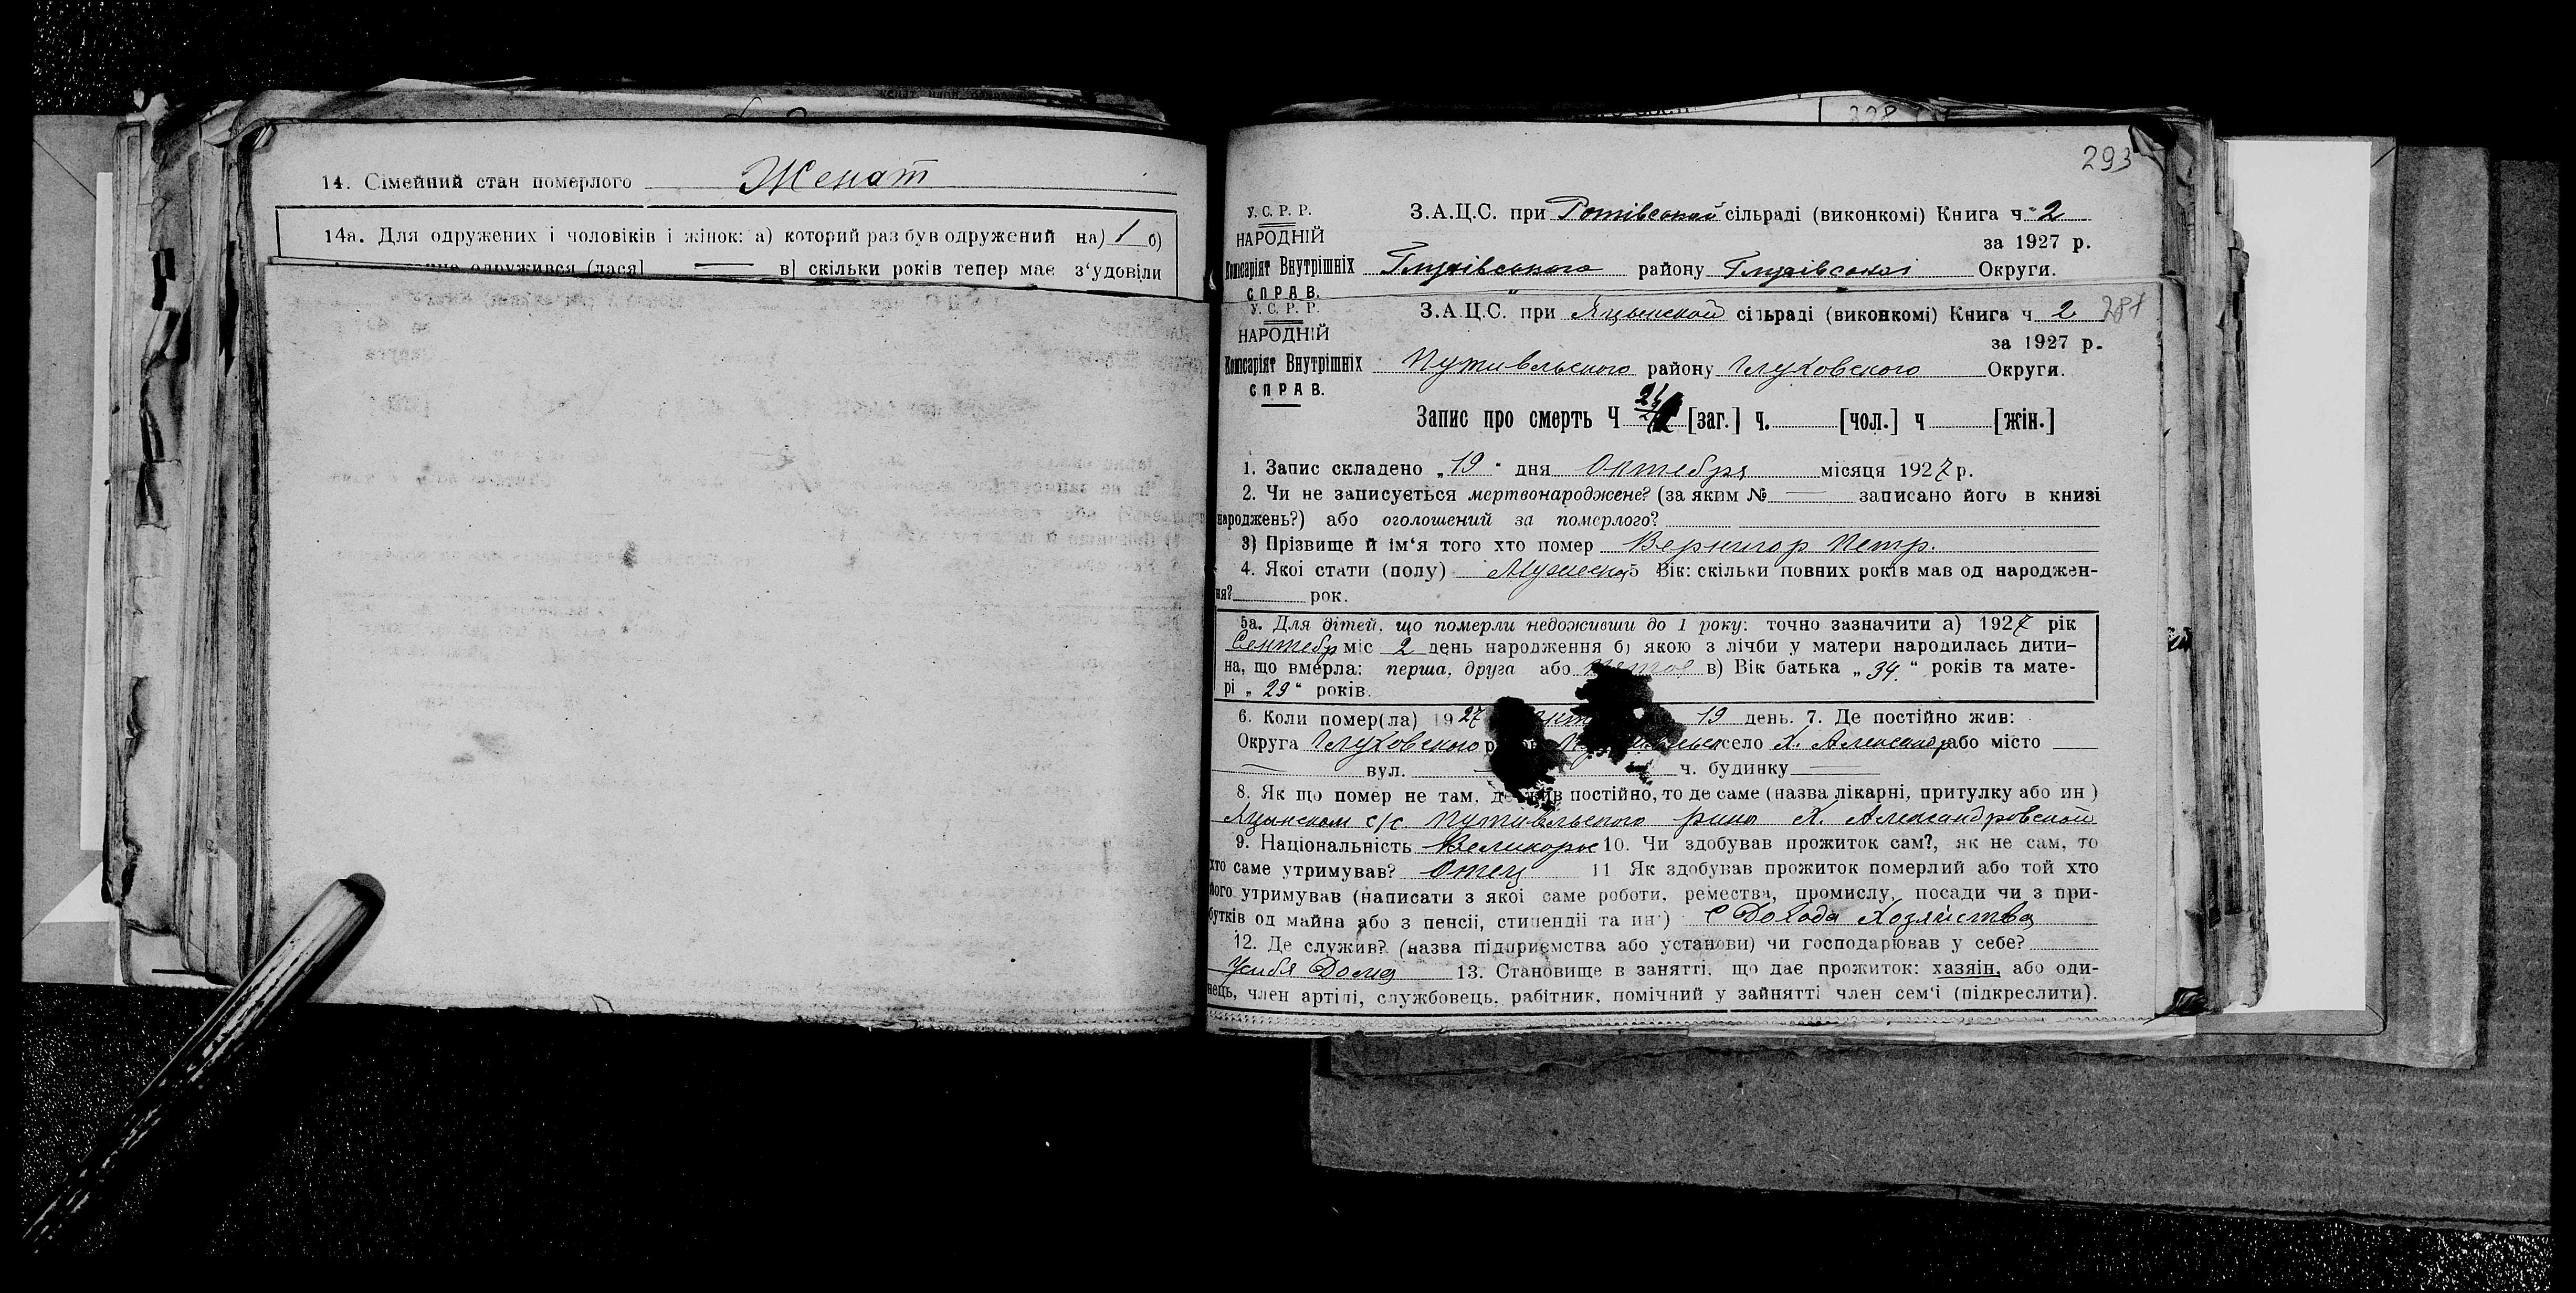 14. Сімейний стан померлого Женат
14а. Для одружених і чоловіків і жінок: а) которий раз був одружений на) 1 б)
одружився (лася] — в] скільки років тепер має з‘удовіли
328
293
У. С. Р. Р.
НАРОДНІЙ
Комісаріят Внутрішніх
СПРАВ.
З.А.Ц.С. при сільраді (виконкомі) Книга ч. 2
за 1927 р.
Глухівського району Глухівської Округи.
У. С. Р. Р.
НАРОДНІЙ
Комісаріят Внутрішніх
СПРАВ.
З.А.Ц.С. при Яцынской сільраді (виконкомі) Книга ч 2 281
за 1927 р.
Путивльского району Глуховского Округи.
Запис про смерть Ч [заг.] ч. [чол.] ч [жін.]
1. Запис складено „19“ дня Октебря місяця 1927 р.
2. Чи не записується мертвонароджене? (за яким № — записано його в книзі
народжень?) або оголошений за померлого?
3) Прізвище й ім‘я того хто помер Вернигор Петр.
4. Якої стати (полу) Мужеска 5 Вік: скільки повних років мав од народжен-
ня? рок.
5а. Для дітей, що померли недоживши до 1 року: точно зазначити а) 1927 рік
Сентебр міс 2 день народження б) якою з лічби у матери народилась дити-
на, що вмерла: перша, друга або в) Вік батька „34.“ років та мате-
рі „29“ років.
6. Коли помер(ла) 1927 19 день. 7. Де постійно жив:
Округа Глуховского село Х. Александр або місто —
— вул. — ч. будинку —
8. Як що помер не там, де жив постійно, то де саме (назва лікарні, притулку або ин)
Яцынском с/с. Путивльского рина Х. Александровской
9. Національність Великорос 10. Чи здобував прожиток сам?, як не сам, то
хто саме утримував? Отец 11 Як здобував прожиток померлий або той хто
його утримував (написати з якої саме роботи, ремества, промислу, посади чи з при-
бутків од майна або з пенсії, стипендії та ин·) С Дохода Хозяйства
12. Де служив? (назва підприємства або установи) чи господарював у себе?
Усибя Дома 13. Становище в занятті, що дає прожиток: хазяін, або оди-
нець, член артілі, службовець, рабітник, помічний у зайнятті член сем‘ї (підкреслити).